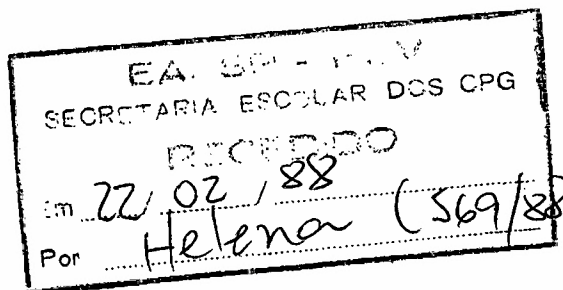 EA.
SECRETARIA ESCOLAR DOS CPG
RECEBIDO
Em 22/02/88
Por Helena (569/88)